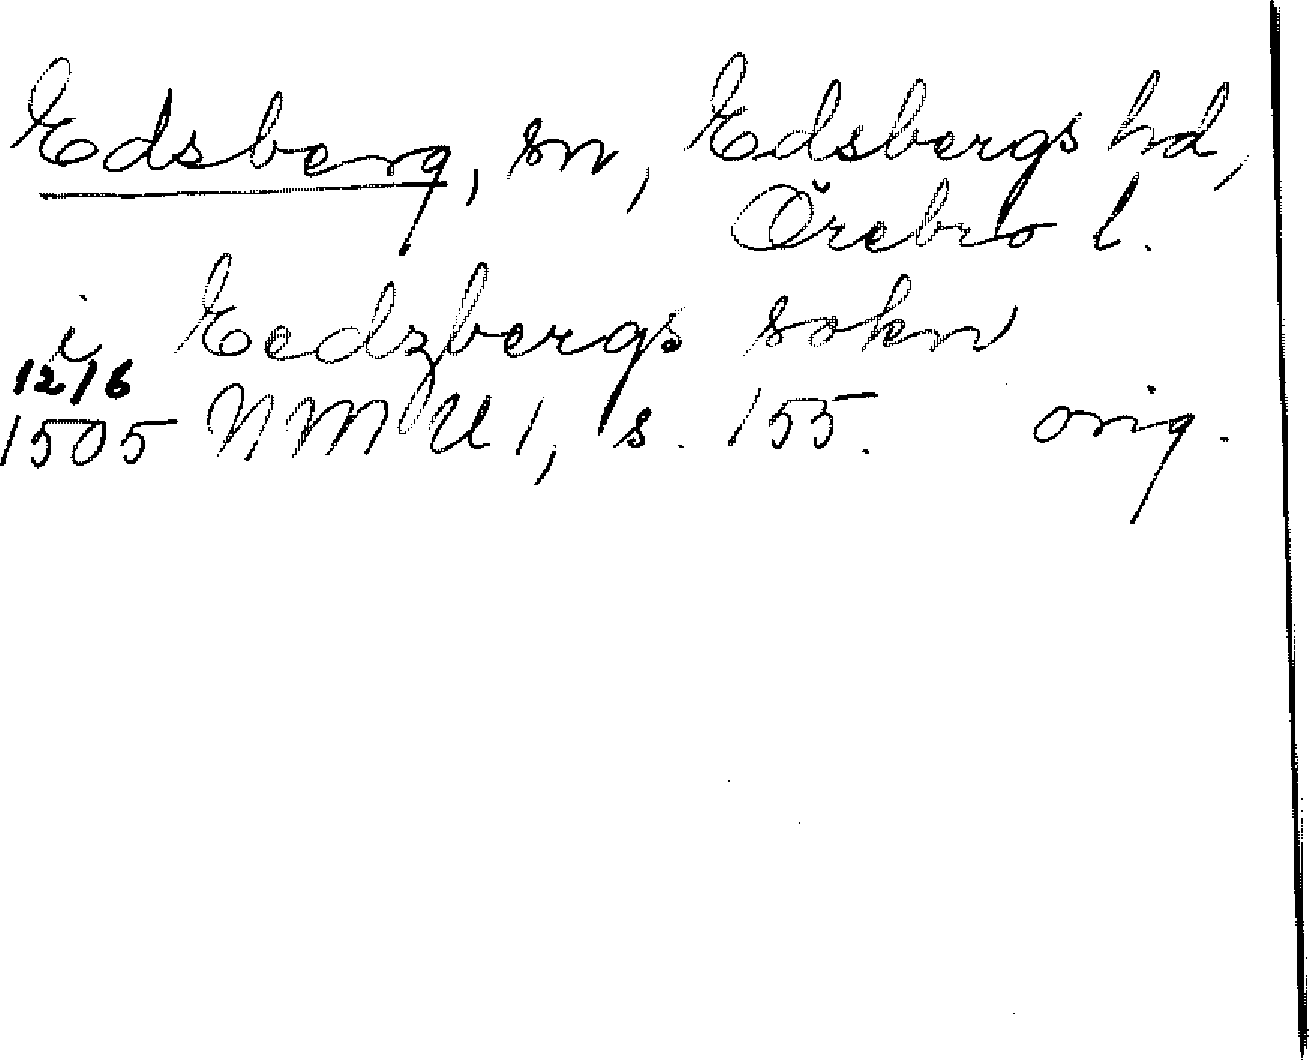 Edsberg, sn, Edsbergs hd,
Örebro l.
i Eedzbergs sokn
12/6
1505 NMU 1, s. 155. orig.